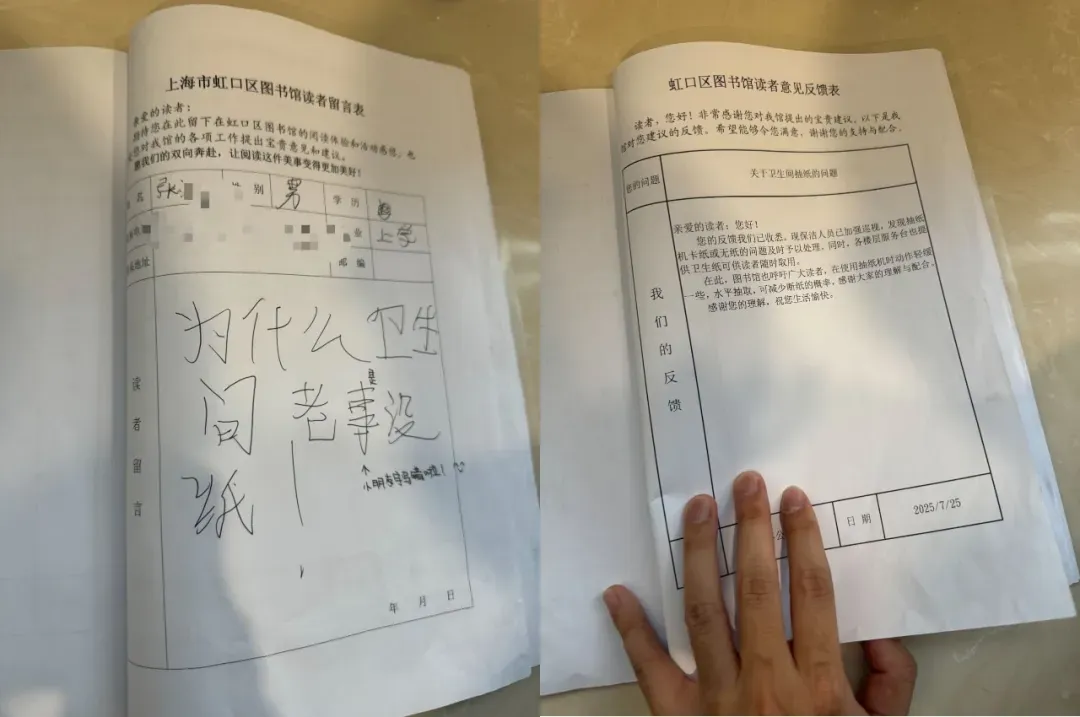 上海市虹口区图书馆读者留言表
亲爱的读者：
期待您在此留下在虹口区图书馆的阅读体验和活动感悟，也
对我馆的各项工作提出宝贵意见和建议。
我们的双向奔赴，让阅读这件美事变得更加美好！
名 张 别 男 学 历
业 上学
地址 邮 编
读者留言
为什么卫生
间老事没
是
纸！
↑
小朋友字写错啦！
年 月 日
虹口区图书馆读者意见反馈表
读者，您好！非常感谢您对我馆提出的宝贵建议，以下是我
馆对您建议的反馈，希望能够令您满意，谢谢您的支持与配合。
您的问题 关于卫生间抽纸的问题
我们的反馈
亲爱的读者：您好！
您的反馈我们已收悉。现保洁人员已加强巡视，发现抽纸
机卡纸或无纸的问题及时予以处理。同时，各楼层服务台也提
供卫生纸可供读者随时取用。
在此，图书馆也呼吁广大读者，在使用抽纸机时动作轻缓
一些，水平抽取，可减少断纸的概率。感谢大家的理解与配合。
感谢您的理解，祝您生活愉快。
日 期 2025/7/25